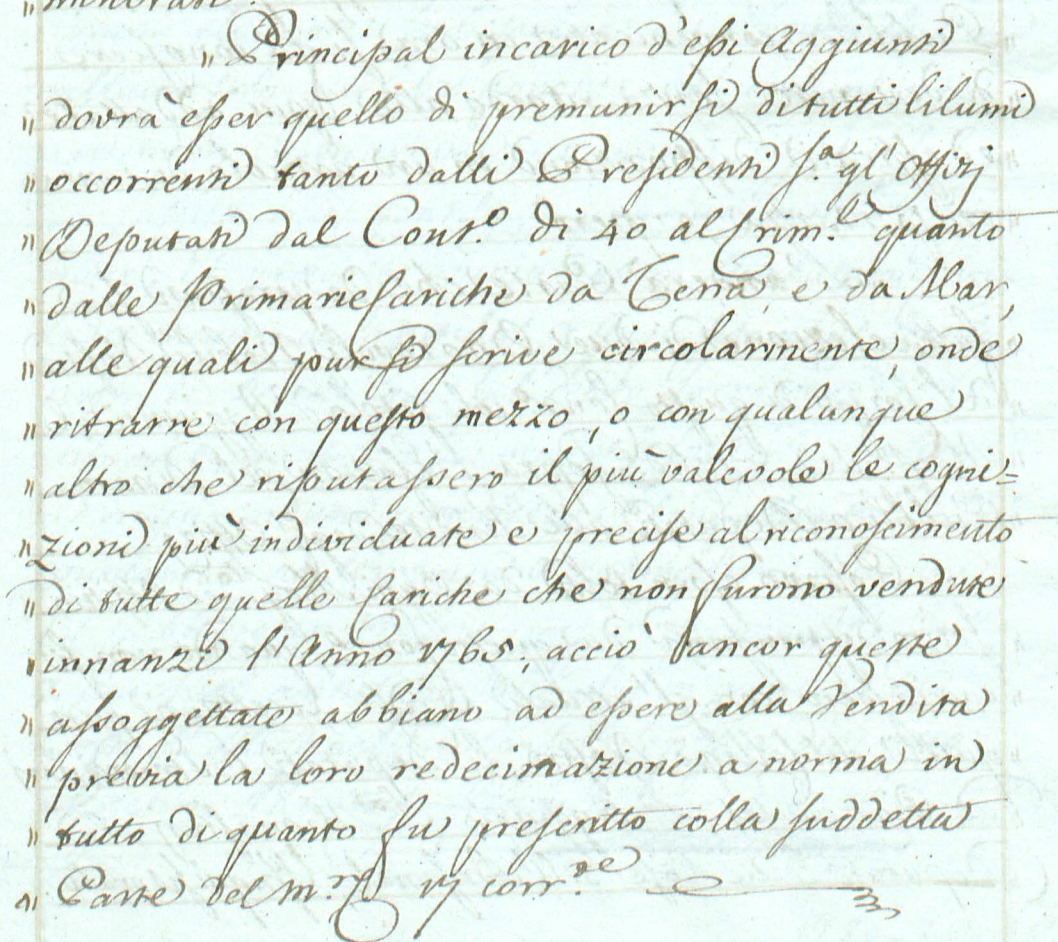 " Principal incarico d'essi Aggiunti
" dovrà esser quello di premunirsi di tutti li lumi
" occorrenti tanto dalli Presidenti s.ª gl' Offizj
" Deputati dal Cons.º di 40 al Crim.l quanto
" dalle Primarie Cariche da Terra, e da Mar,
" alle quali pur si scrive circolarmente, onde
" ritrarre con questo mezzo, o con qualunque
" altro che riputassero il più valevole le cogni=
" zioni più individuate e precise al riconoscimento
" di tutte quelle Cariche che non furono vendute
" innanzi l' Anno 1765, acciò ancor queste
" assoggettate abbiano ad essere alla Vendita
" previa la loro redecimazione a norma in
" tutto di quanto fu prescritto colla suddetta
" Parte del 17 corr.te